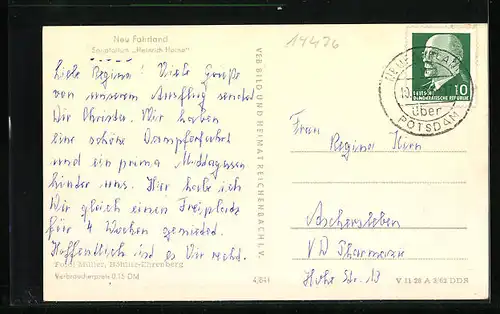 Neu Fahrland
Sanatorium „Heinrich Heine"
14436
Liebe Regina! Viele Grüße
von unserem Ausflug sendet
Dir Christa. Wir haben
eine schöne Dampferfahrt
und ein prima Mittagessen
hinter uns. Hier habe ich
Dir gleich einen Freiplatz
für 4 Wochen gemietet.
Hoffentlich ist es Dir recht.
Foto: Müller, Ehrenberg
Verbraucherpreis 0,15 DM
VEB BILD UND HEIMAT REICHENBACH I. V.
10
DEUTSCHE
DEMOKRATISCHE REPUBLIK
NEU FAHRLAND
über
POTSDAM
Frau
Regina
Aschersleben
VD Pharmazie
Hohe Str. 13
V 11 28 A 3/62 DDR